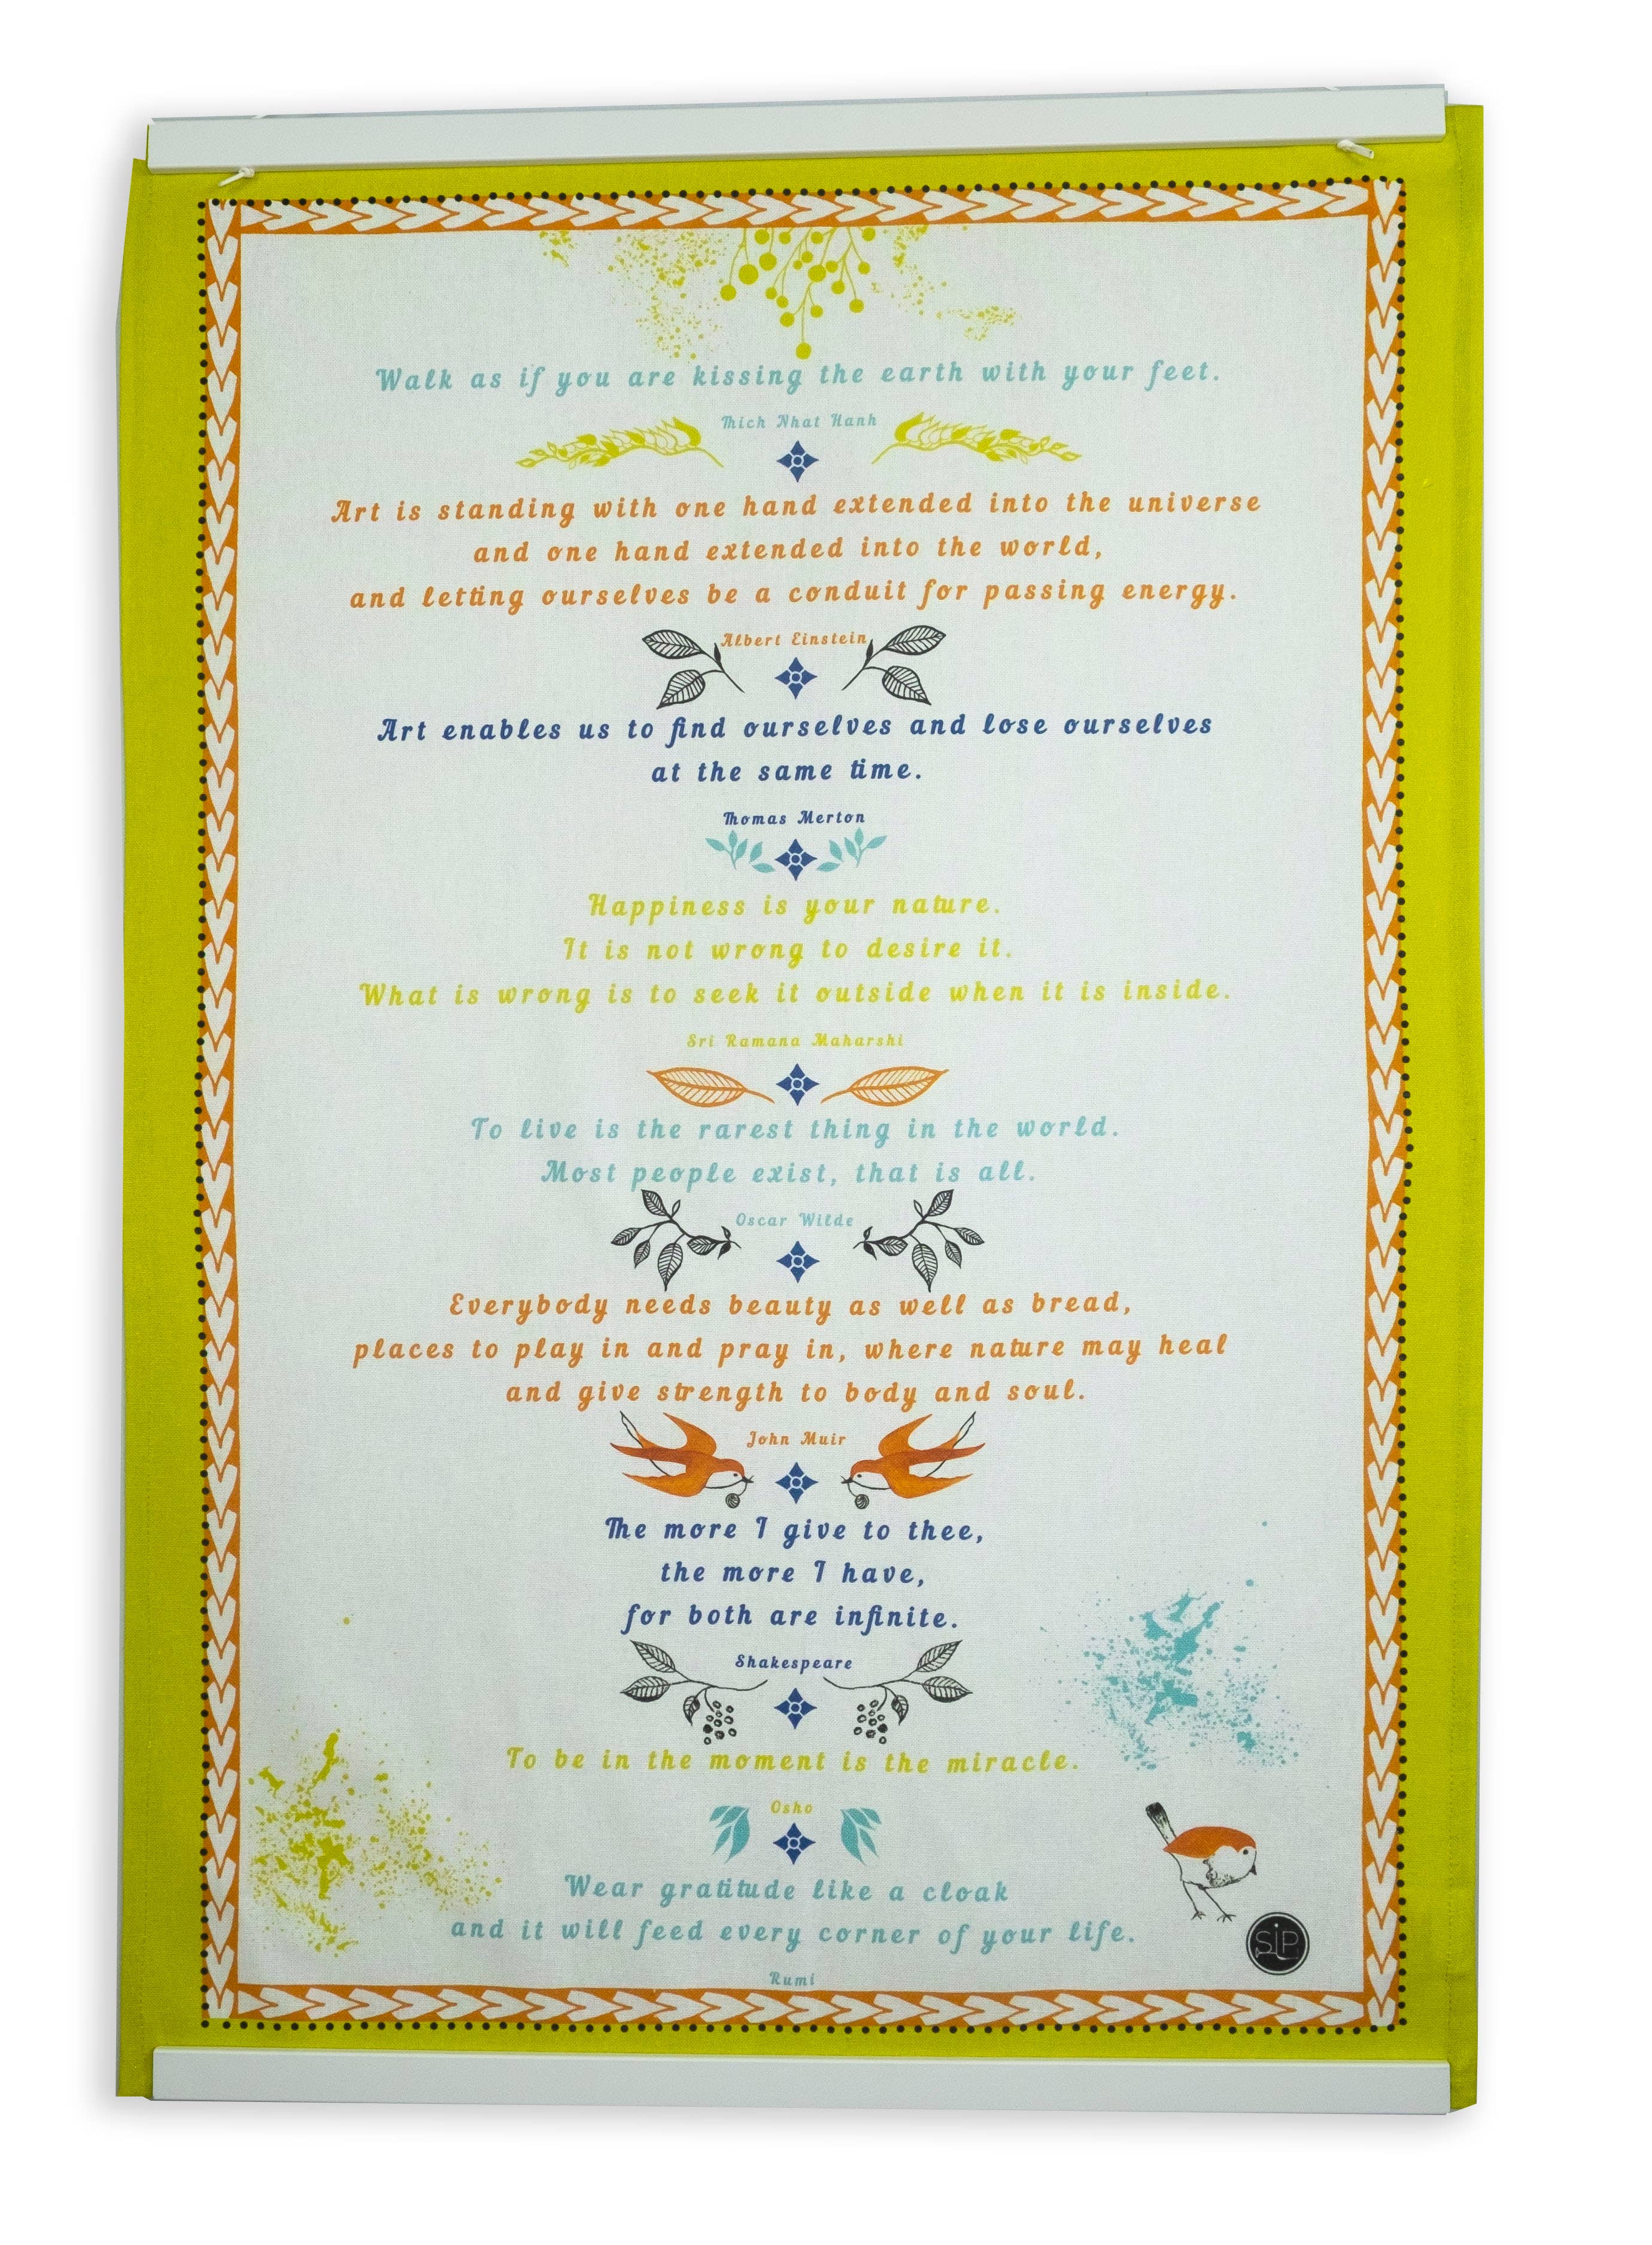 Walk as if you are kissing the earth with your feet.
Thich Nhat Hanh
Art is standing with one hand extended into the universe
and one hand extended into the world,
and letting ourselves be a conduit for passing energy.
Albert Einstein
Art enables us to find ourselves and lose ourselves
at the same time.
Thomas Merton
Happiness is your nature.
It is not wrong to desire it.
What is wrong is to seek it outside when it is inside.
Sri Ramana Maharshi
To live is the rarest thing in the world.
Most people exist, that is all.
Oscar Wilde
Everybody needs beauty as well as bread,
places to play in and pray in, where nature may heal
and give strength to body and soul.
John Muir
The more I give to thee,
the more I have,
for both are infinite.
Shakespeare
To be in the moment is the miracle.
Osho
Wear gratitude like a cloak
and it will feed every corner of your life.
Rumi
SLP